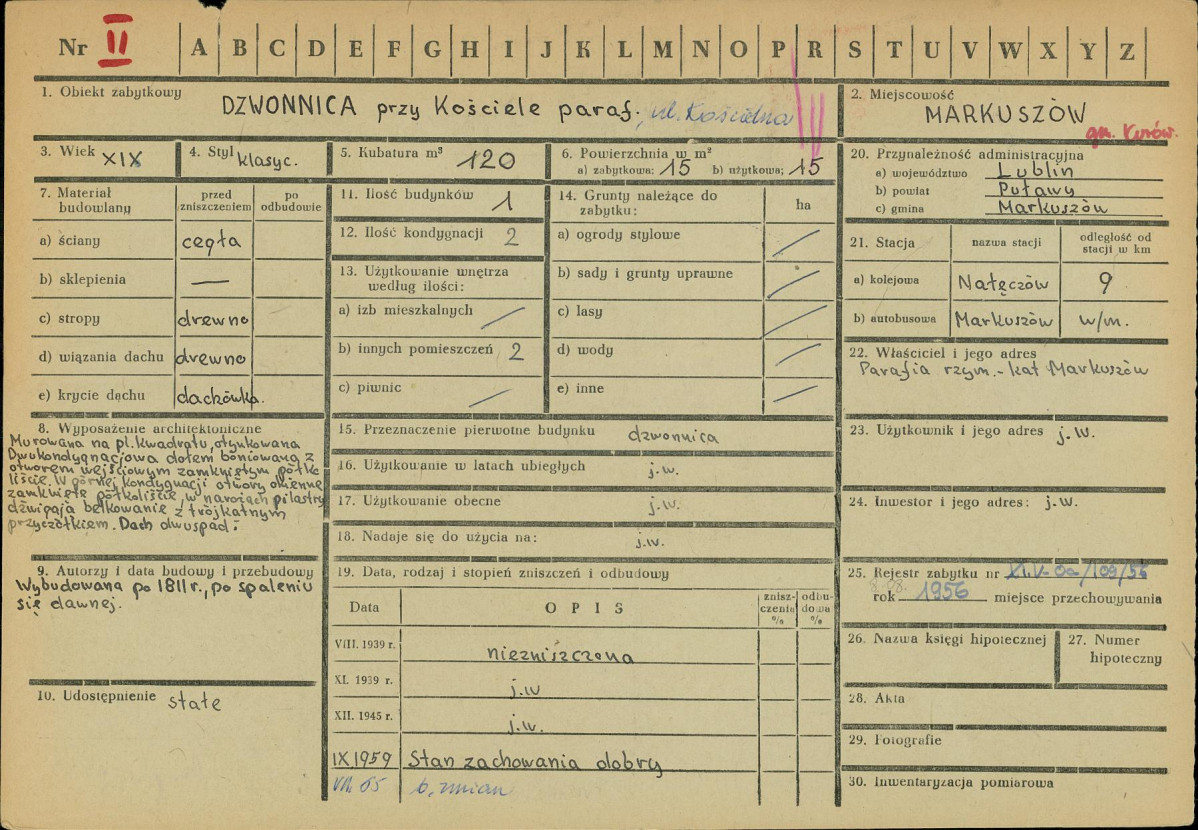 Nr II A B C D E F G H I J K L M N O P R S T U V W X Y Z
1. Obiekt zabytkowy
DZWONNICA przy Kościele paraf. ul. Kościelna
2. Miejscowość
MARKUSZÓW
gm. Kurów.
3. Wiek XIX
4. Styl klasyc.
5. Kubatura m³ 120
6. Powierzchnia w m²
a) zabytkowa: 15 b) użytkowa; 15
20. Przynależność administracyjna
a) województwo Lublin
b) powiat Puławy
c) gmina Markuszów
7. Materiał budowlany
przed zniszczeniem
po odbudowie
a) ściany cegła
b) sklepienia —
c) stropy drewno
d) wiązania dachu drewno
e) krycie dachu dachówka.
11. Ilość budynków 1
12. Ilość kondygnacji 2
13. Użytkowanie wnętrza
według ilości:
a) izb mieszkalnych
b) innych pomieszczeń 2
c) piwnic
14. Grunty należące do
zabytku:
ha
a) ogrody stylowe
b) sady i grunty uprawne
c) lasy
d) wody
e) inne
21. Stacja
nazwa stacji
odległość od
stacji w km
a) kolejowa Nałęczów 9
b) autobusowa Markuszów w/m.
22. Właściciel i jego adres
Parafia rzym.-kat Markuszów
8. Wyposażenie architektoniczne
Murowana na pl. kwadratu, otynkowana
Dwukondygnacjowa dołem boniowana z
otworem wejściowym zamkniętym półko
liście. W górnej kondygnacji otwory okienne
zamknięte półkoliście, w narożach pilastry
dźwigają belkowanie z trójkątnym
przyczółkiem. Dach dwuspad:
15. Przeznaczenie pierwotne budynku dzwonnica
16. Użytkowanie w latach ubiegłych j.w.
17. Użytkowanie obecne j.w.
18. Nadaje się do użycia na: j.w.
23. Użytkownik i jego adres j.w.
24. Inwestor i jego adres: j.w.
9. Autorzy i data budowy i przebudowy
Wybudowana po 1811 r., po spaleniu
się dawnej.
10. Udostępnienie stałe
19. Data, rodzaj i stopień zniszczeń i odbudowy
Data
OPIS
znisz-
czenia
%
odbu-
dowa
%
VIII. 1939 r. niezniszczona
XI. 1939 r. j.w
XII. 1945 r. j.w.
IX 1959 Stan zachowania dobry
VII. 65 b. zmian
25. Rejestr zabytku nr XI.V-Oa/109/56
rok 1956 miejsce przechowywania
26. Nazwa księgi hipotecznej
27. Numer
hipoteczny
28. Akta
29. Fotografie
30. Inwentaryzacja pomiarowa